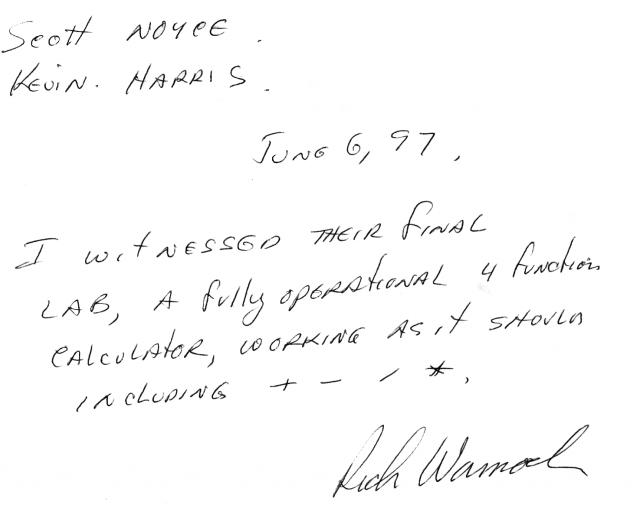 Scott NOYCE.
KEVIN. HARRIS.
JUNE 6, 97.
I witNESSED THEIR fiNAL
LAB, A fully OPERAtIONAL 4 function
CALCULAtOR, WORKING AS it SHOULD
INCLUDING + - / *.
Rich